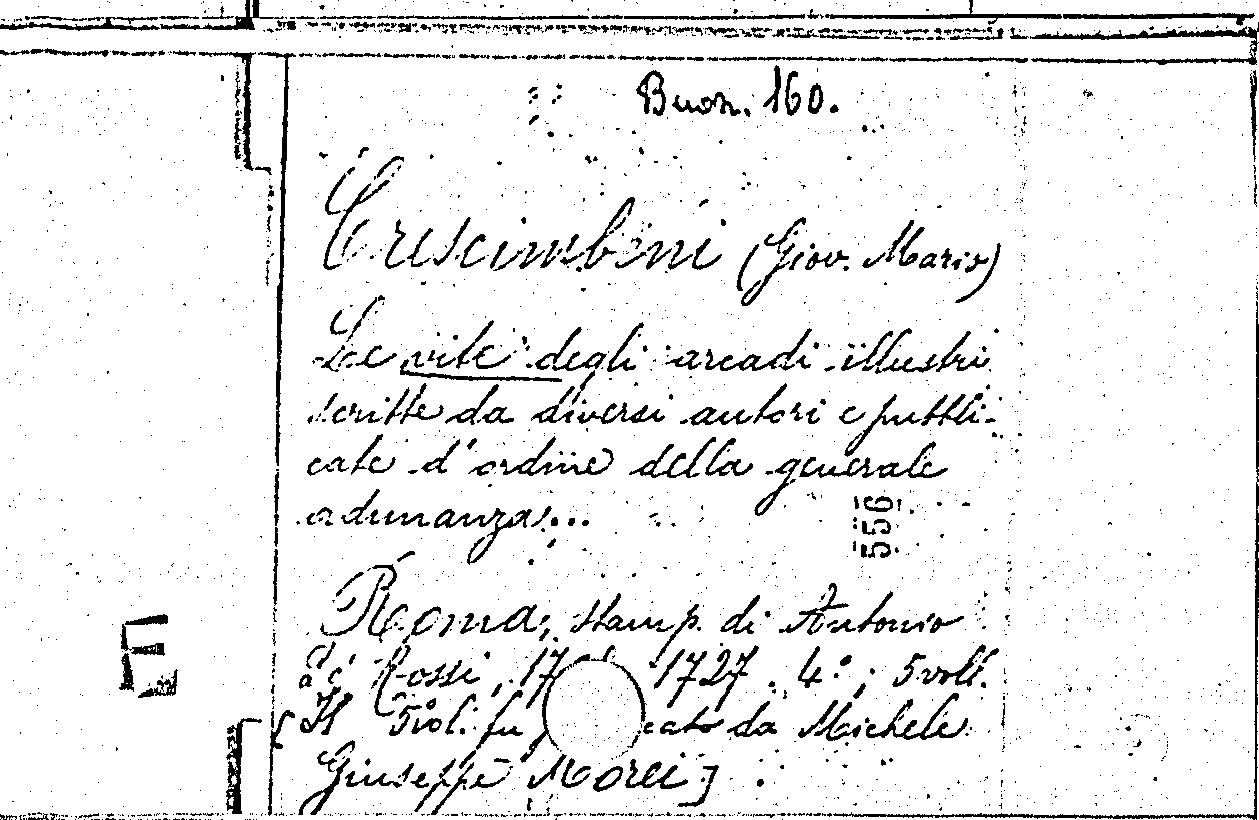 Buon. 160.
Crescimbeni (Giov. Mario)
Le vite degli arcadi illustri
scritte da diversi autori e pubbli-
cate d'ordine della generale
adunanza...
556
Roma, stamp. di Antonio
de' Rossi, 17 1727. 4°; 5 voll.
[Il 5° vol. fu da Michele
Giuseppe Morei]